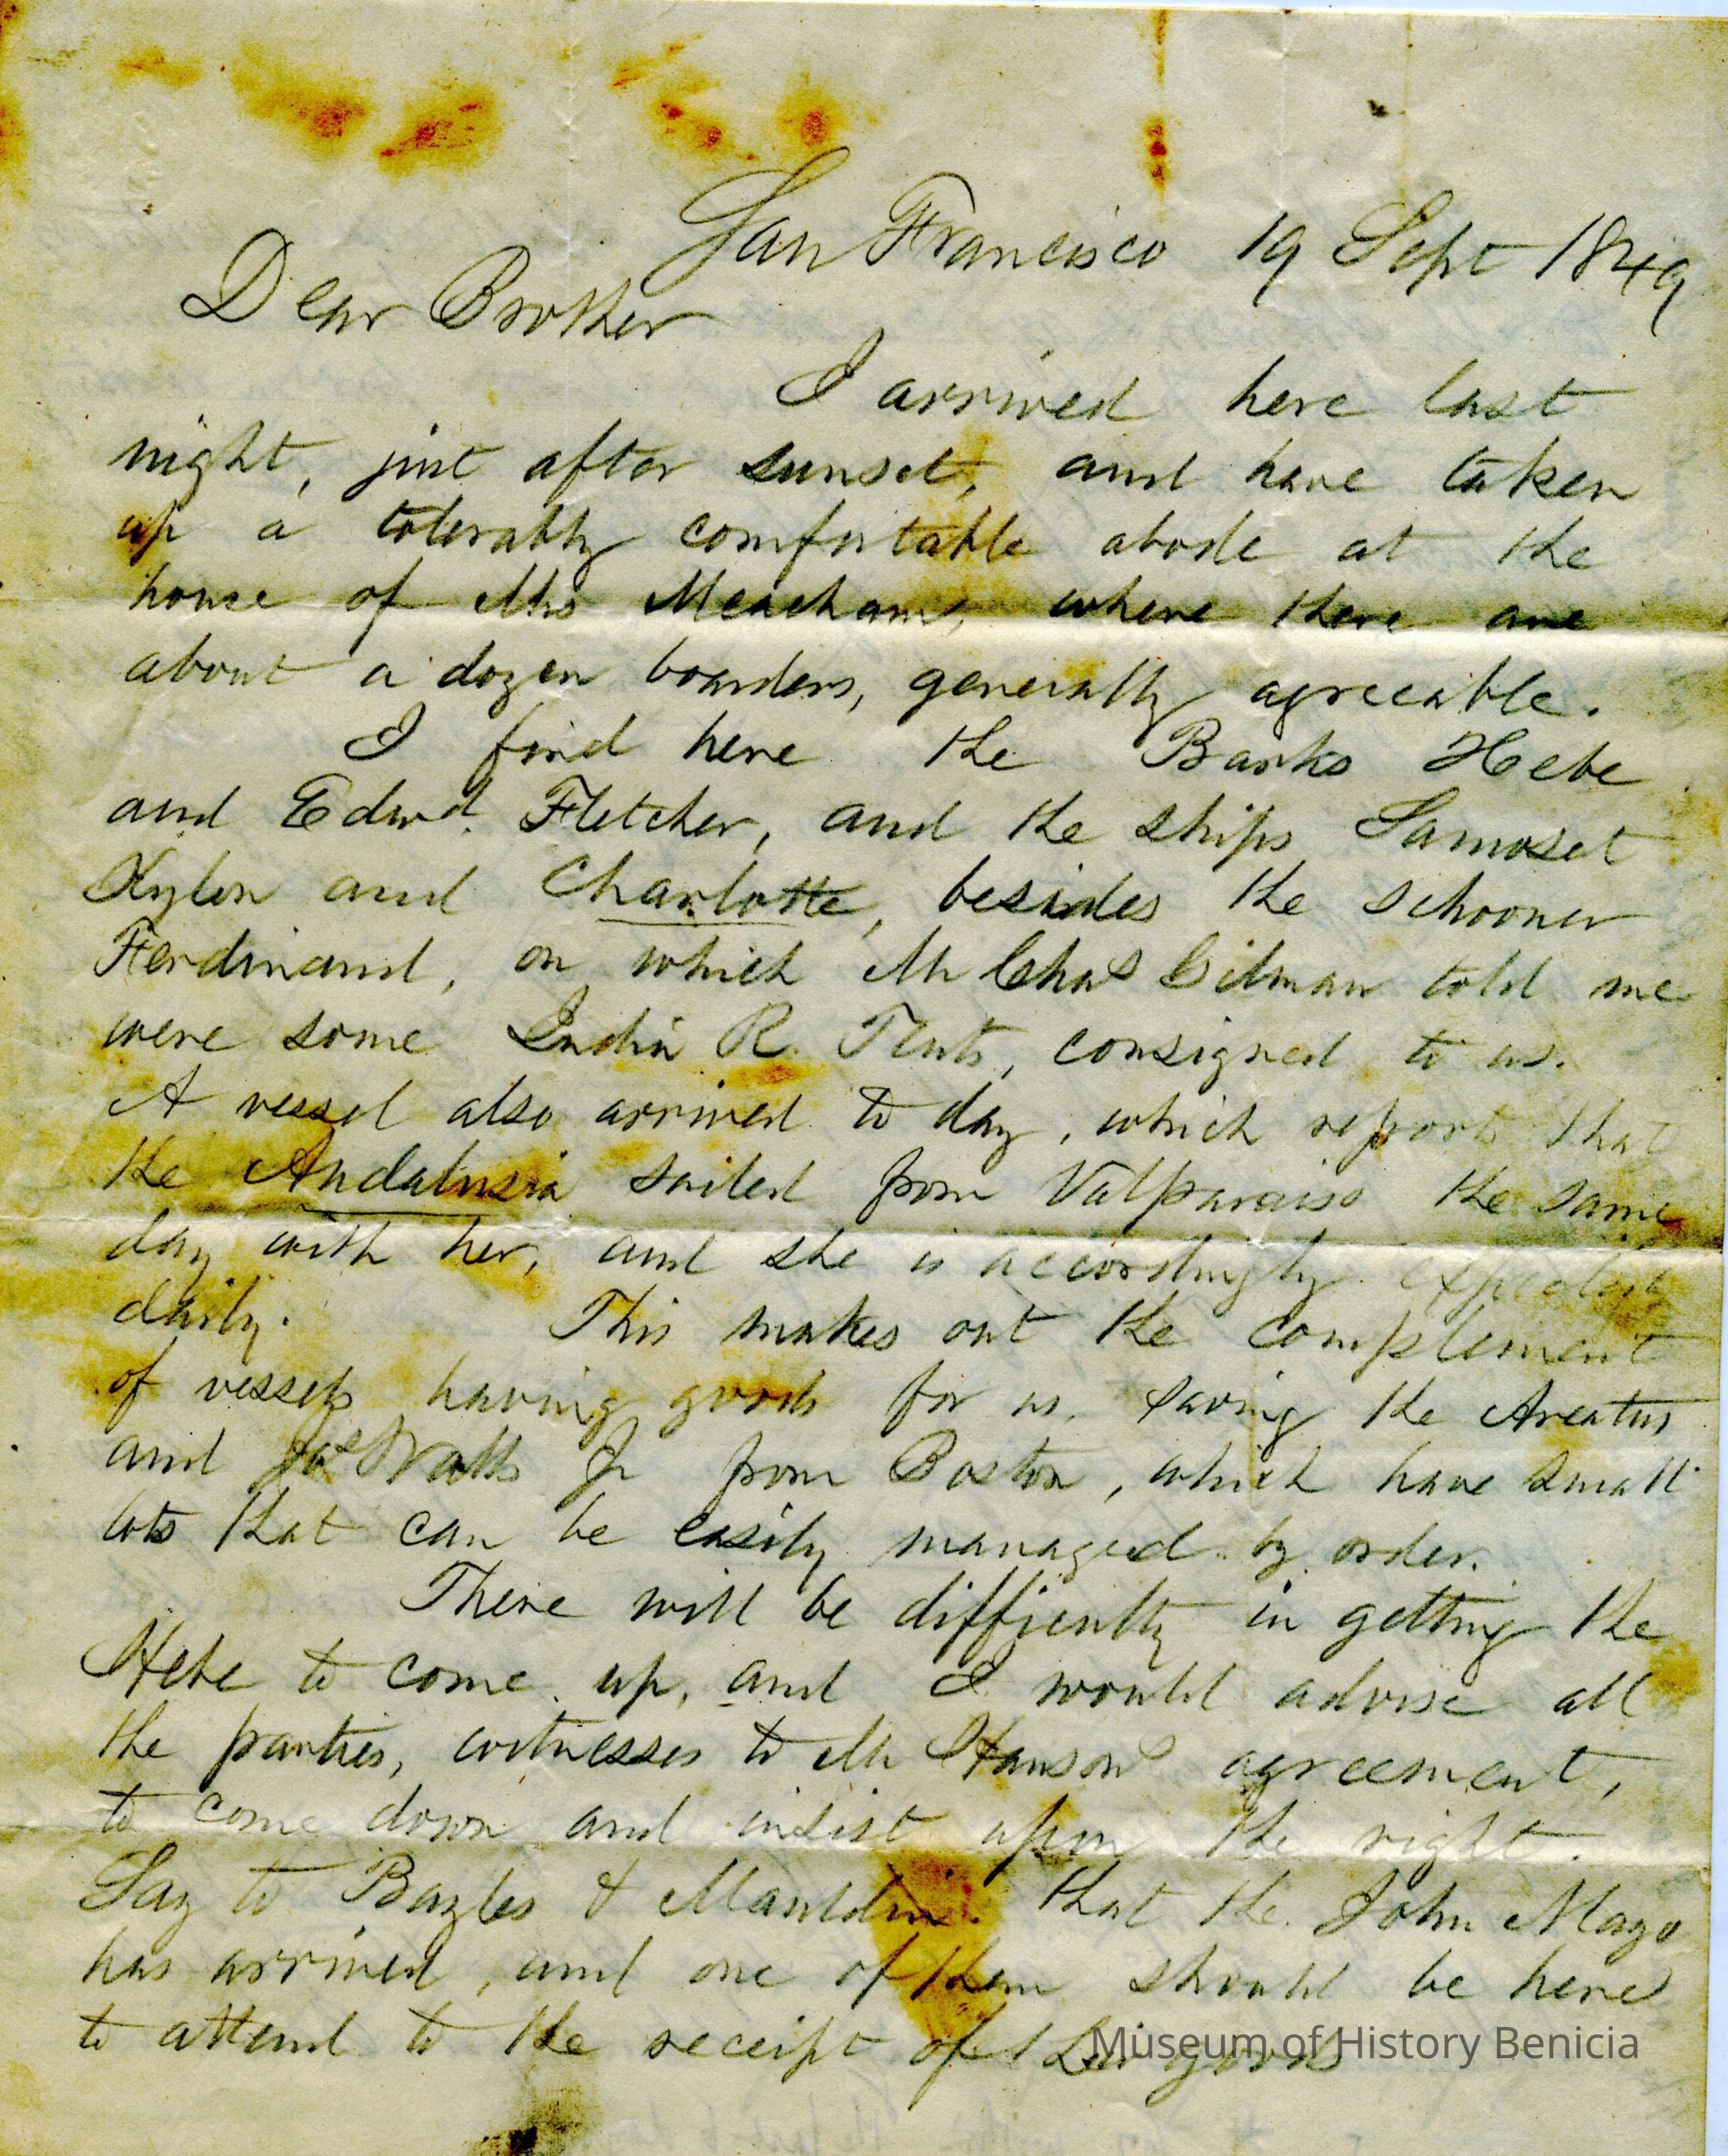 San Francisco 19 Sept 1849
Dear Brother
I arrived here last
night, just after sunset, and have taken
up a tolerably comfortable abode at the
house of Mrs Meacham, where there are
about a dozen boarders, generally agreeable.
I find here the Barks Hebe
and Edwd. Fletcher, and the ships Samoset
Xylon and Charlotte, besides the schooner
Ferdinand, on which Mr Chas Gilman told me
were some India R. Tents, consigned to us.
A vessel also arrived to day, which reports that
the Andalusia sailed from Valparaiso the same
day with her, and she is accordingly expected
daily. This makes out the complement
of vessels having goods for us, saving the Areatus
and Jas Watts Jr from Boston, which have small
lots that can be easily managed by order.
There will be difficulty in getting the
Hebe to come up, and I would advise all
the parties, witnesses to Mr Hansons agreement,
to come down and insist upon the right.
Say to Bayles & Mauldin that the John Mayo
has arrived, and one of them should be here
to attend to the receipt of their goods
Museum of History Benicia